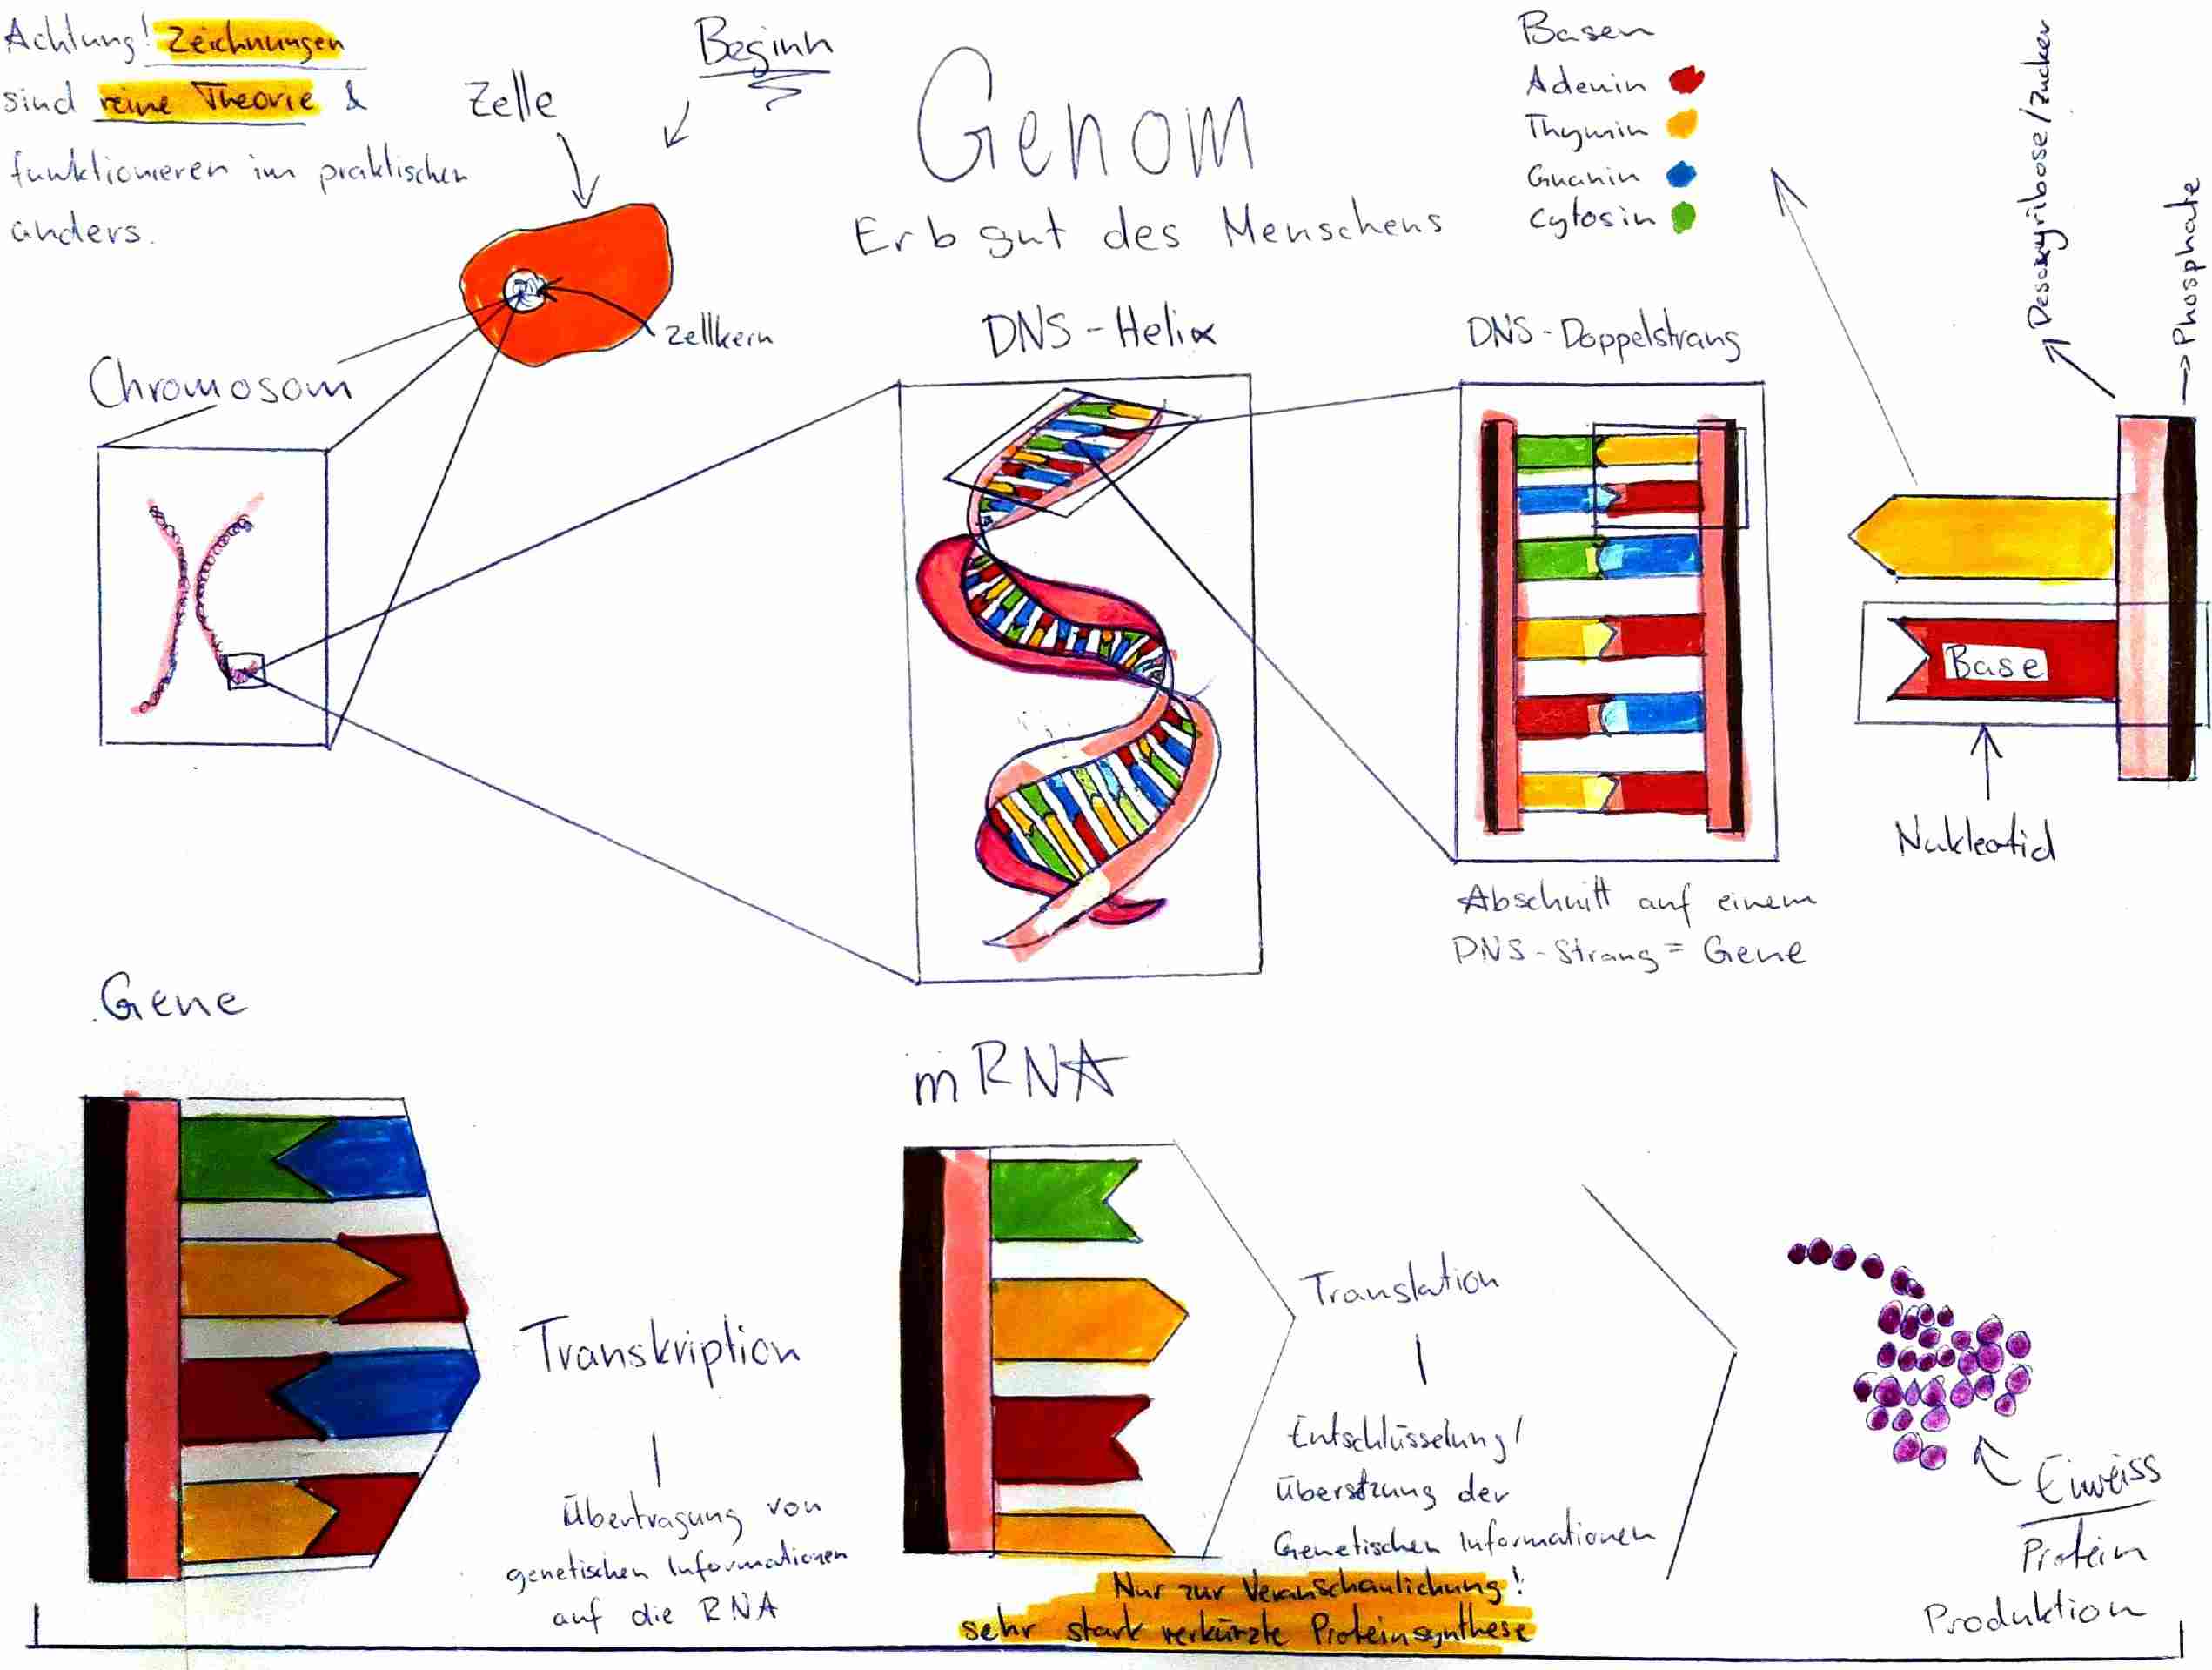 Achtung! Zeichnungen
sind reine Theorie &
funktionieren im praktischen
anders.
Beginn
Zelle
Zellkern
Genom
Erbgut des Menschens
Basen
Adenin
Thymin
Guanin
Cytosin
Desoxyribose/Zucker
Phosphate
Chromosom
DNS-Helix
DNS-Doppelstrang
Base
Nukleotid
Abschnitt auf einem
DNS-Strang = Gene
Gene
Transkription
Übertragung von
genetischen Informationen
auf die RNA
mRNA
Translation
Entschlüsselung/
Übersetzung der
Genetischen Informationen
Nur zur Veranschaulichung!
sehr stark verkürzte Proteinsynthese
Eiweiss
Protein
Produktion